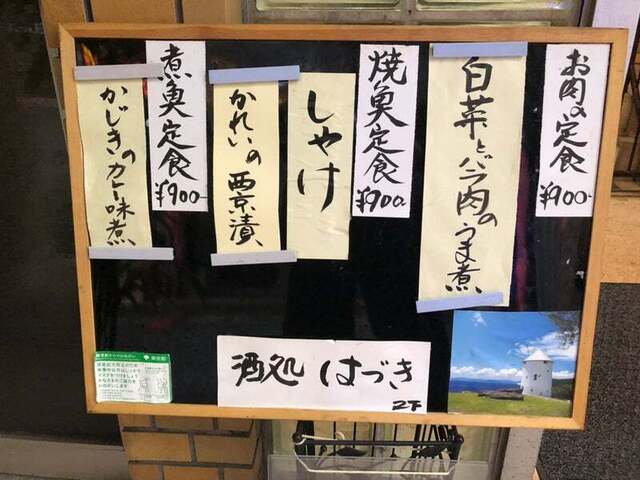 お肉の定食
¥900-
白菜とバラ肉のうま煮
焼魚定食
¥900
しゃけ
かれいの西京漬
煮魚定食
¥900-
かじきのカレー味煮
酒処 はづき
2F
東京都